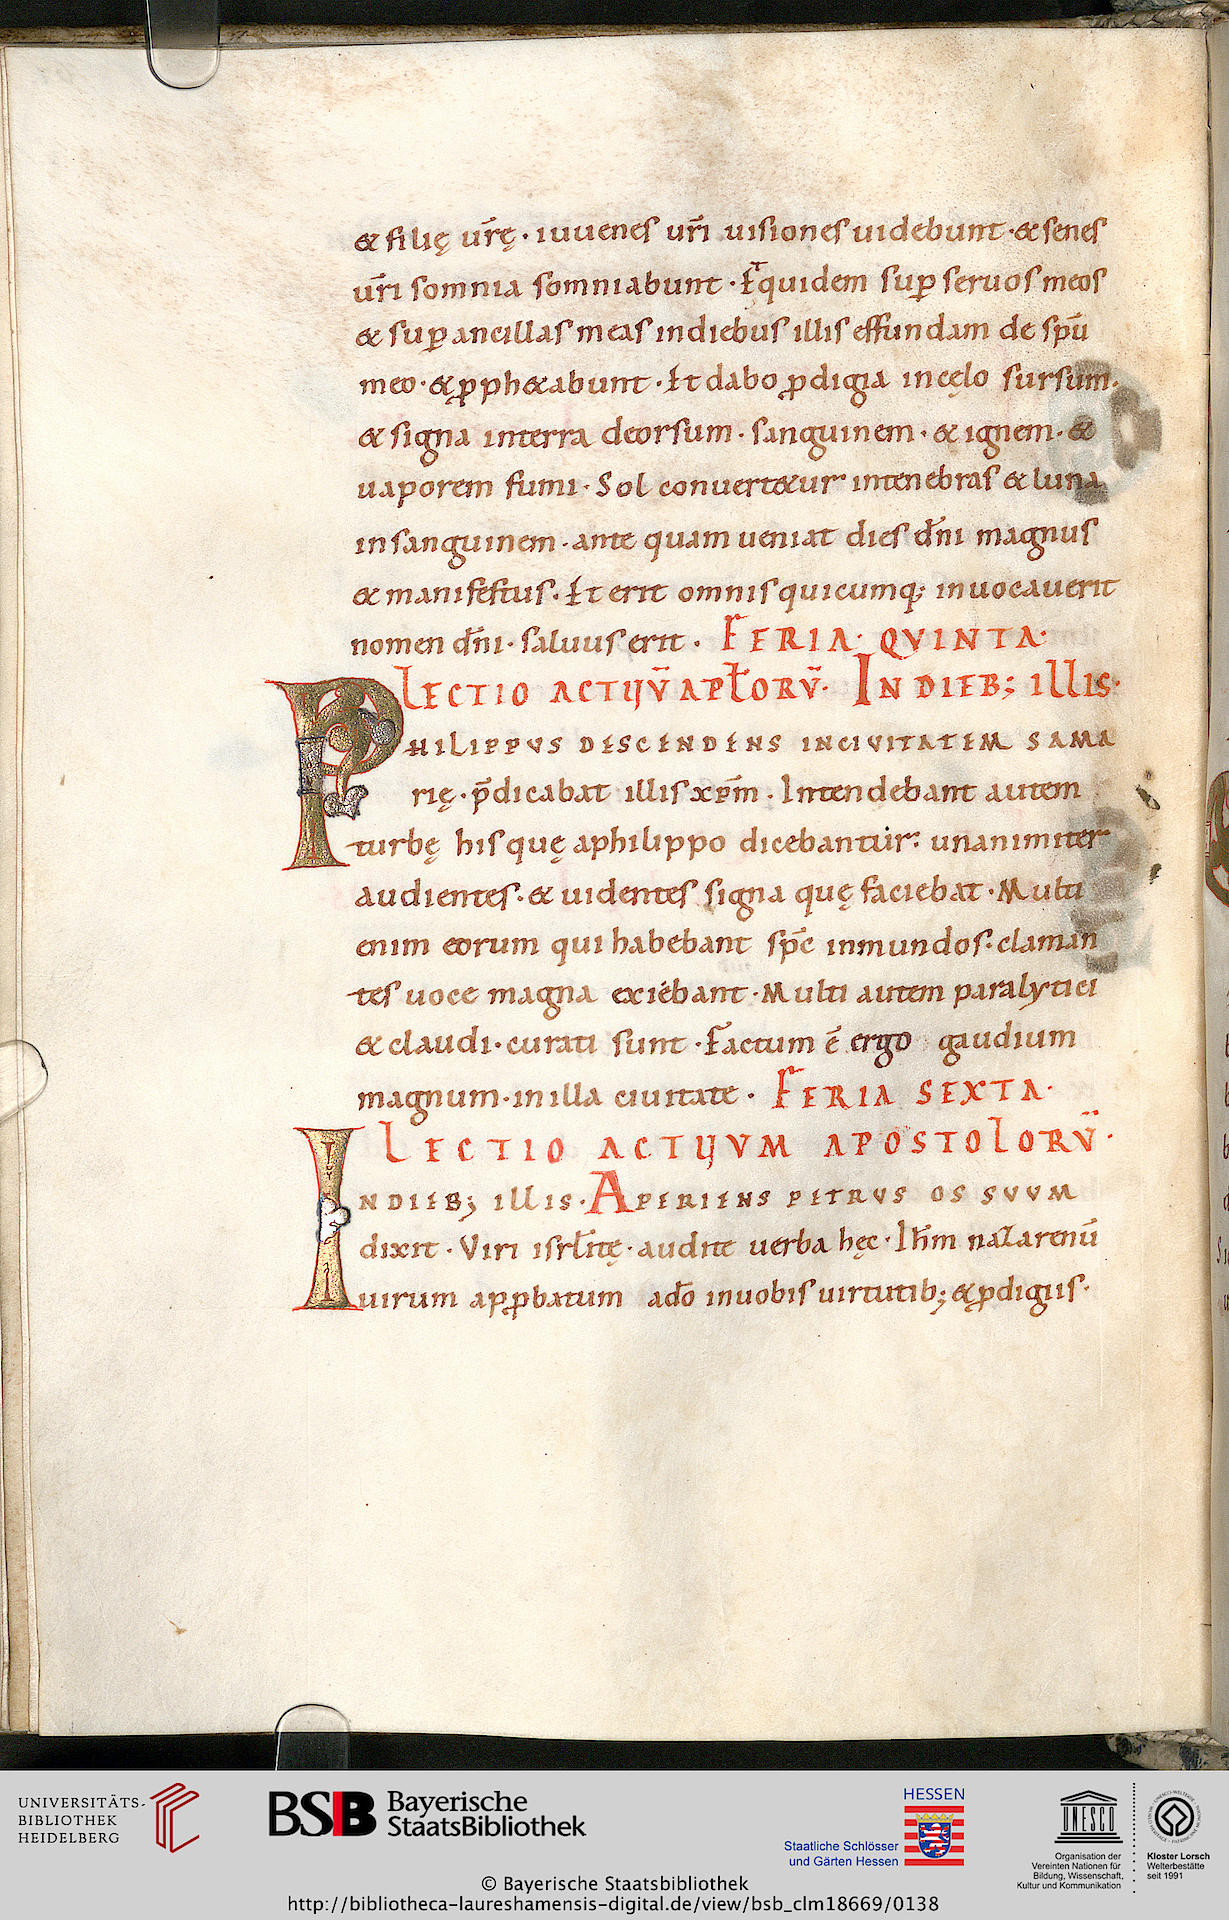 & filię ur̄ę · iuuenes ur̄i uisiones uidebunt · & senes
ur̄i somnia somniabunt · Et̄quidem suꝑ seruos meos
& suꝑ ancillas meas indiebus illis effundam de sp̄u
meo · & ꝓph&abunt · Et dabo ꝓdigia incęlo sursum ·
& signa interra deorsum · sanguinem · & ignem · &
uaporem fumi · Sol conuert&ur intenebras & luna
insanguinem · ante quam ueniat dies dn̄i magnus
& manifestus · Et erit omnis quicumq; inuocauerit
nomen dn̄i · saluus erit · FERIA · QVINTA ·
LECTIO ACTIJV̄ APŁORV̄ · IN DIEB; ILLIS ·
PHILIPPVS DESCENDENS INCIVITATEM SAMA
rię · p̄dicabat illis xp̄m · Intendebant autem
turbę his quę aphilippo dicebantur · unanimiter
audientes · & uidentes signa quę faciebat · Multi
enim eorum qui habebant sp̄c inmundos · claman
tes uoce magna exiebant · Multi autem paralytici
& claudi · curati sunt · Factum ē ergo gaudium
magnum · inilla ciuitate · FERIA SEXTA ·
LECTIO ACTIJVM APOSTOLORV̄ ·
INDIEB; ILLIS · APERIENS PETRVS OS SVVM
dixit · Viri isrł̄itę · audite uerba hęc · Ih̄m nazarenū
uirum apꝓbatum ado̅ inuobis uirtutib; & ꝓdigiis ·
UNIVERSITÄTS-
BIBLIOTHEK
HEIDELBERG
BSB Bayerische
StaatsBibliothek
HESSEN
Staatliche Schlösser
und Gärten Hessen
UNESCO
Organisation der
Vereinten Nationen für
Bildung, Wissenschaft,
Kultur und Kommunikation
Kloster Lorsch
Welterbestätte
seit 1991
© Bayerische Staatsbibliothek
http://bibliotheca-laureshamensis-digital.de/view/bsb_clm18669/0138